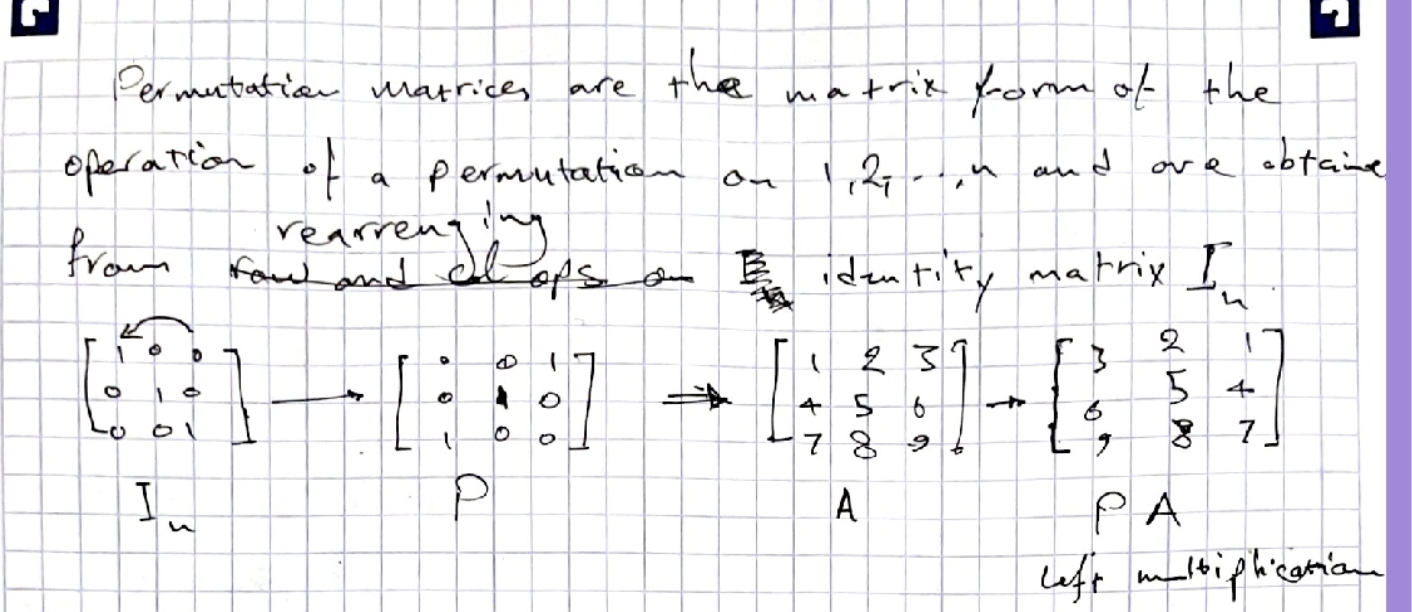 Permutation matrices are the matrix form of the
operation of a permutation on 1,2,...,n and are obtaine
rearrenging
from row and col ops on identity matrix In.
[1 0 0 [0 0 1 [1 2 3] [3 2 1]
0 1 0 → 0 1 0 ⇒ 4 5 6 → 6 5 4
0 0 1] 1 0 0] 7 8 9] 9 8 7]
In P A P A
left multiplication